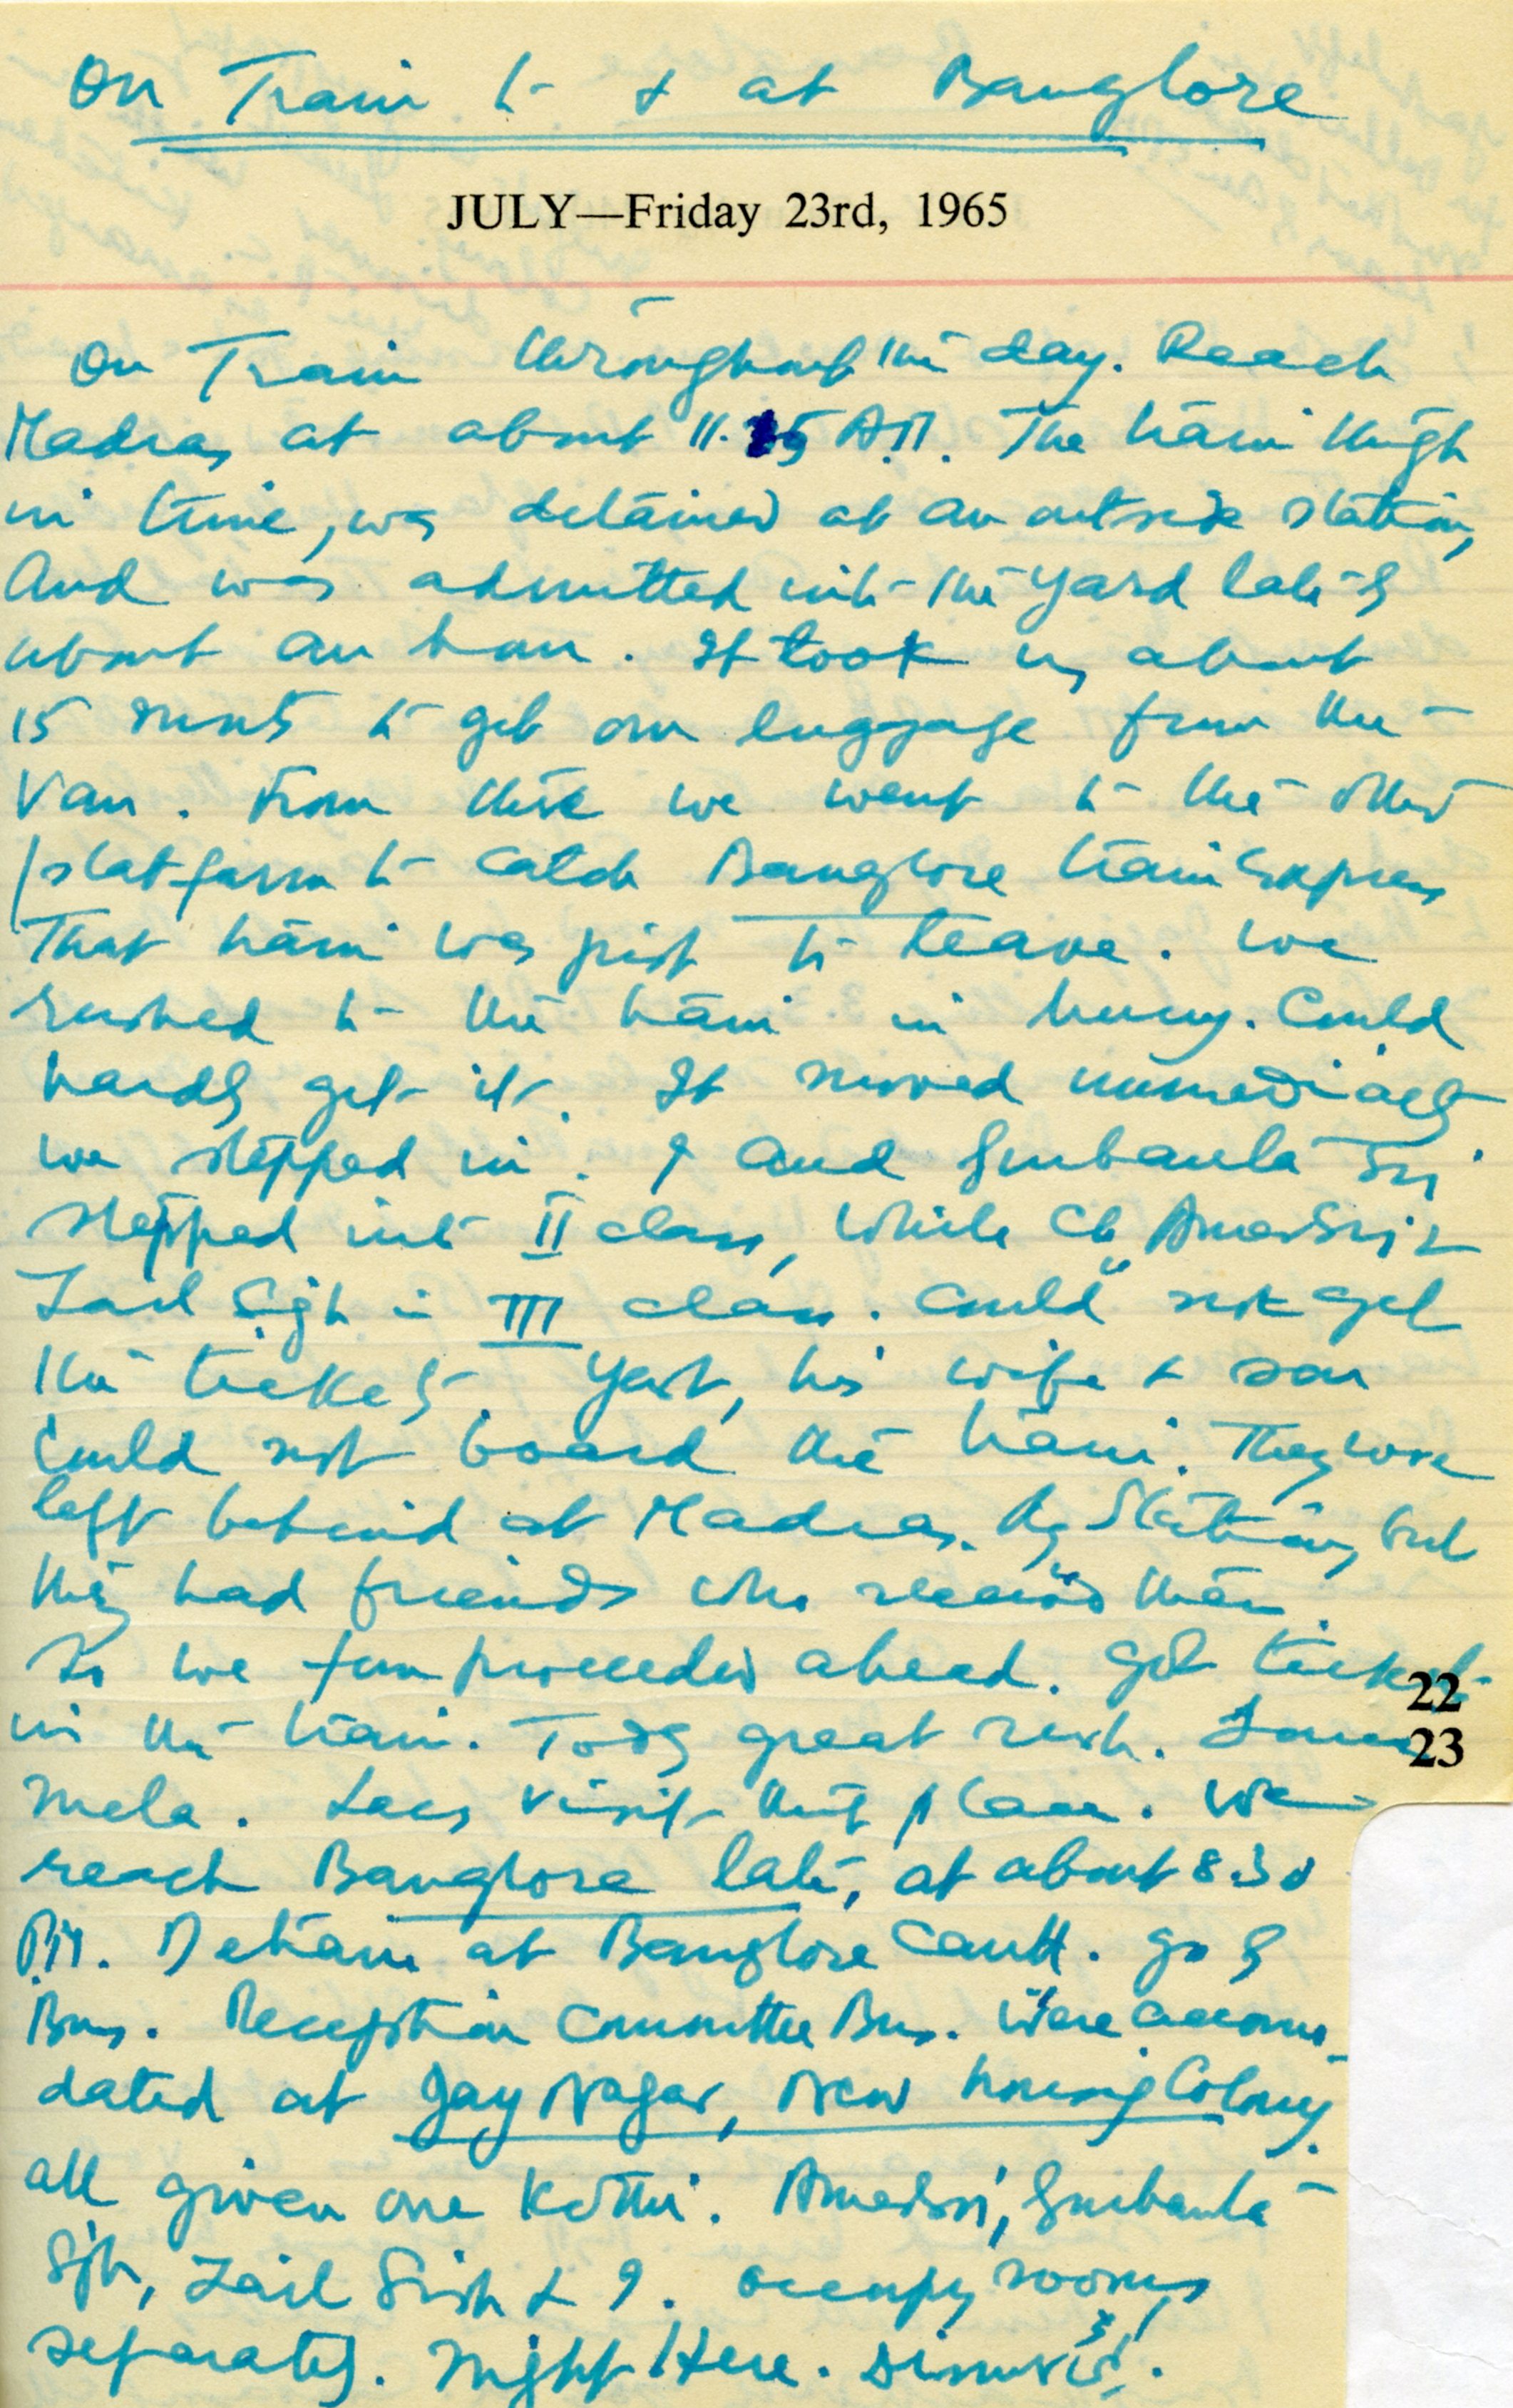 On Train to & at Banglore
JULY—Friday 23rd, 1965
On Train throughout the day. Reach
Madras at about 11.15 A.M. The train though
in time, was detained at an outside station,
And was admitted into the yard late by
about an hour. It took us about
15 minuts to get our luggage from the
Van. From there we went to the other
platform to catch Banglore train Express
That train was just to leave. We
rushed to the train in hurry. Could
hardly get it. It moved immediately
we stepped in. I and Gurbanta Sri
stepped into II class, while Ch Amar Sri &
Zail Sigh in III class. Could not get
the tickets. Yash, his wife & son
could not board the train. They were
left behind at Madras Ry Station, but
they had friends who received them.
So we four proceeded ahead. Got tickets
in the train. Today great rush. Some
mela. Lacs visit this place. We
reach Banglore late, at about 8.30
P.M. Detrain at Banglore Cantt. go by
Bus. Reception Committee Bus. Were accomo
dated at Jay Nagar, New housing Colony.
all given one Kothi. Amar Sri, Gurbanta
Sigh, Zail Sigh & I. occupy rooms
separately. Night Here.
22
23